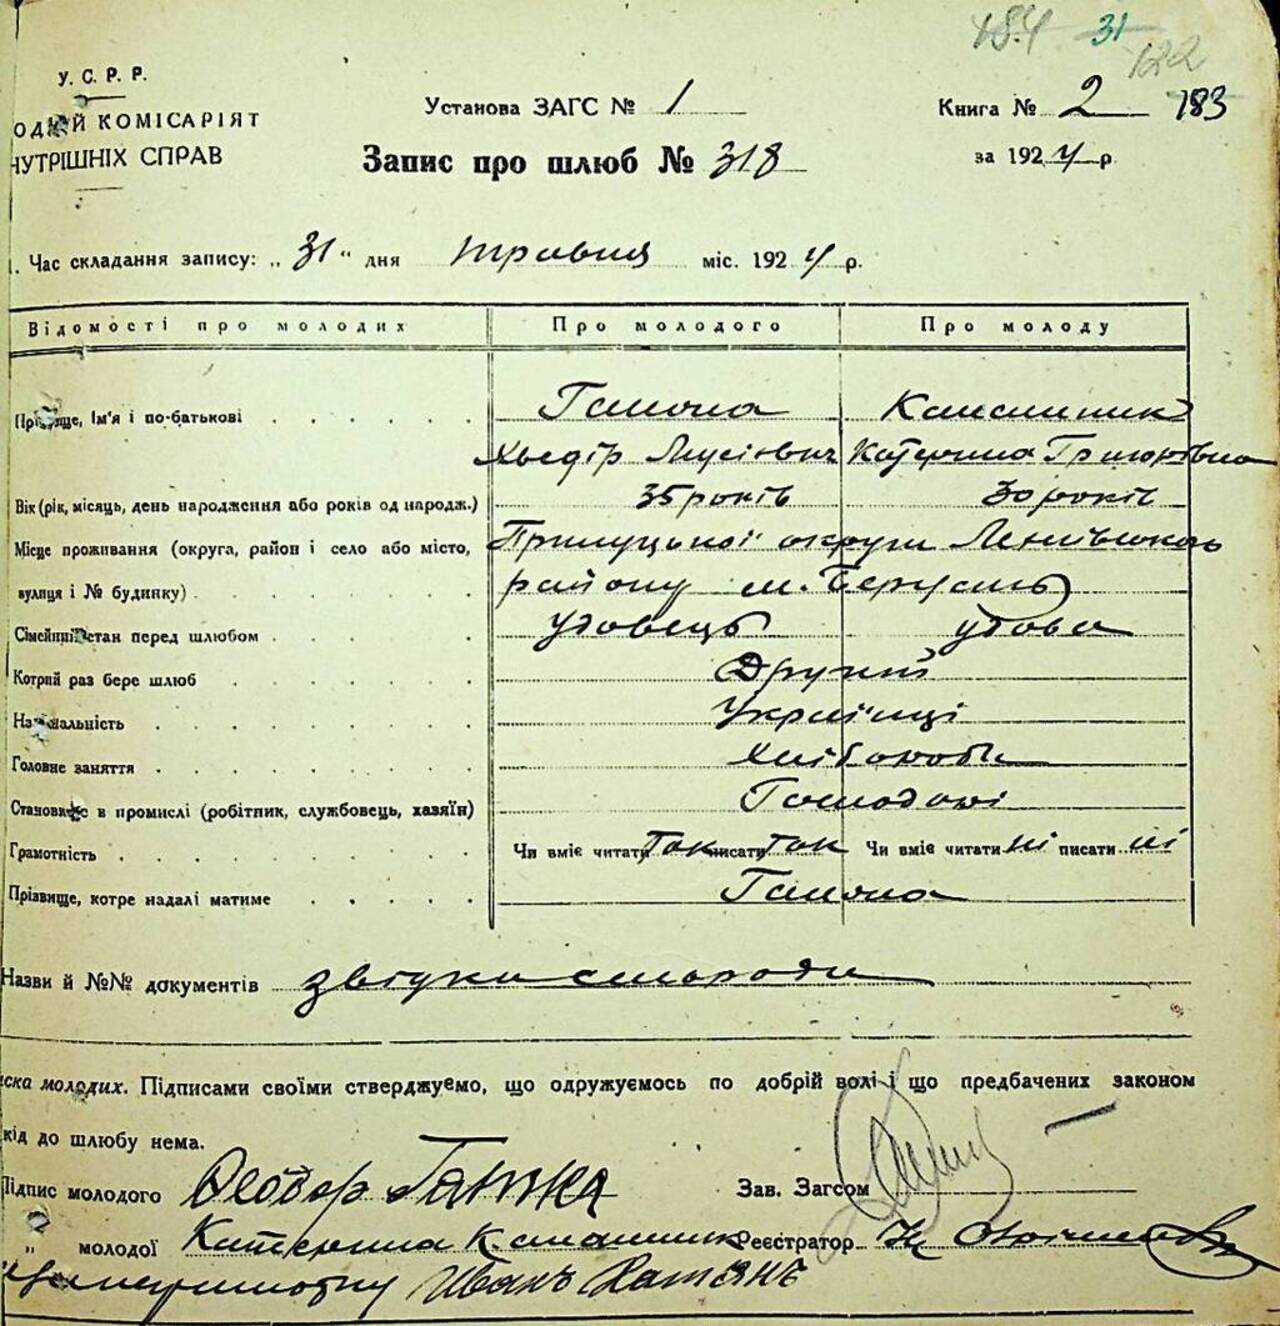 184 31
122
У. С. Р. Р.
КОМІСАРІЯТ
НУТРІШНІХ СПРАВ
Установа ЗАГС № 1
Книга № 2 183
Запис про шлюб № 318
за 1924 р.
Час складання запису: „31" дня травня міс. 1924 р.
Відомості про молодих Про молодого Про молоду
Прізвище, Ім'я і по-батькові
Хведір Катерина Григорівна
Вік (рік, місяць, день народження або років од народж.) 35 років 30 років
Місце проживання (округа, район і село або місто, Прилуцької округи
вулиця і № будинку) району м.
Сімейний стан перед шлюбом удовець удова
Котрий раз бере шлюб Другий
Національність Українці
Головне заняття Хлібороби
Становище в промислі (робітник, службовець, хазяїн) Господарі
Грамотність Чи вміє читати так писати так Чи вміє читати ні писати ні
Прізвище, котре надалі матиме
Назви й №№ документів
молодих. Підписами своїми стверджуємо, що одружуємось по добрій волі і що предбачених законом
кід до шлюбу нема.
Підпис молодого Феодор
Зав. Загсом
„ молодої Катерина
Реєстратор
Иванъ